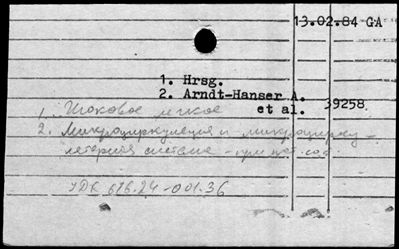 13.02.84 GA
1. Hrsg.
2. Arndt-Hanser A.
et al. 39258
1. Шоковое легкое
2. Микроциркуляция и микроцирку-
система - при
УДК 616.24-001.36